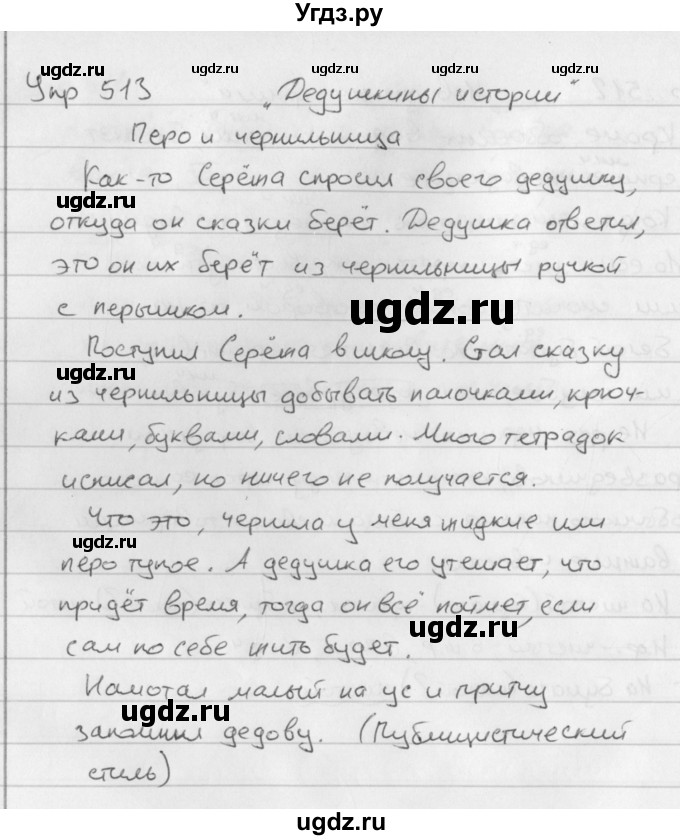 Угдз.ру
ugdz.ru ugdz.ru ugdz.ru ugdz.ru
Упр 513 „Дедушкины истории"
Перо и чернильница
Как-то Серёжа спросил своего дедушку,
ugdz.ru
откуда он сказки берёт. Дедушка ответил,
это он их берёт из чернильницы ручкой
с пёрышком.
ugdz.ru
Поступил Серёжа в школу. Стал сказку
ugdz.ru
из чернильницы добывать палочками, крюч-
ками, буквами, словами. Много тетрадок
исписал, но ничего не получается.
Что это, чернила у меня жидкие или
ugdz.ru
перо тупое. А дедушка его утешает, что
придёт время, тогда он всё поймет, если
ugdz.ru
сам по себе жить будет.
Намотал малый на ус и притчу
ugdz.ru
запомнил дедову. (Публицистический
стиль)
ugdz.ru ugdz.ru ugdz.ru